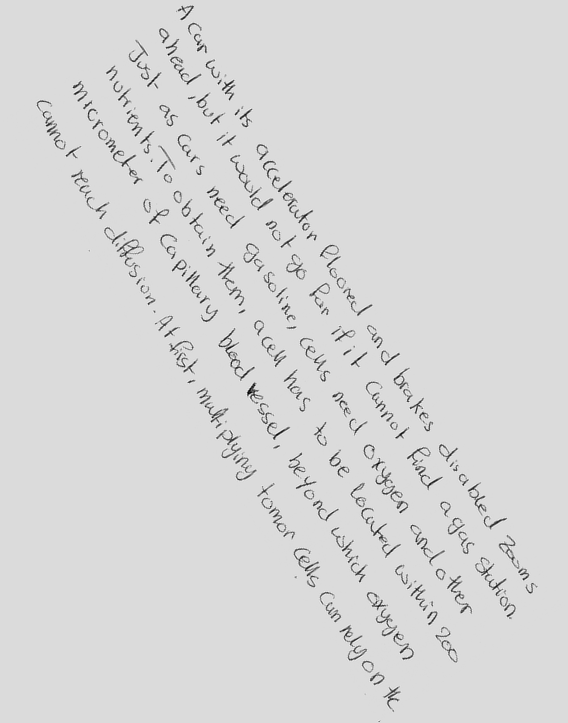 A car with its accelerator floored and brakes disabled zooms
ahead, but it would not go far if it cannot find a gas station.
Just as cars need gasoline, cells need oxygen and other
nutrients. To obtain them, a cell has to be located within 200
micrometer of capillary blood vessel, beyond which oxygen
cannot reach diffusion. At first, multiplying tomor cells can rely on the